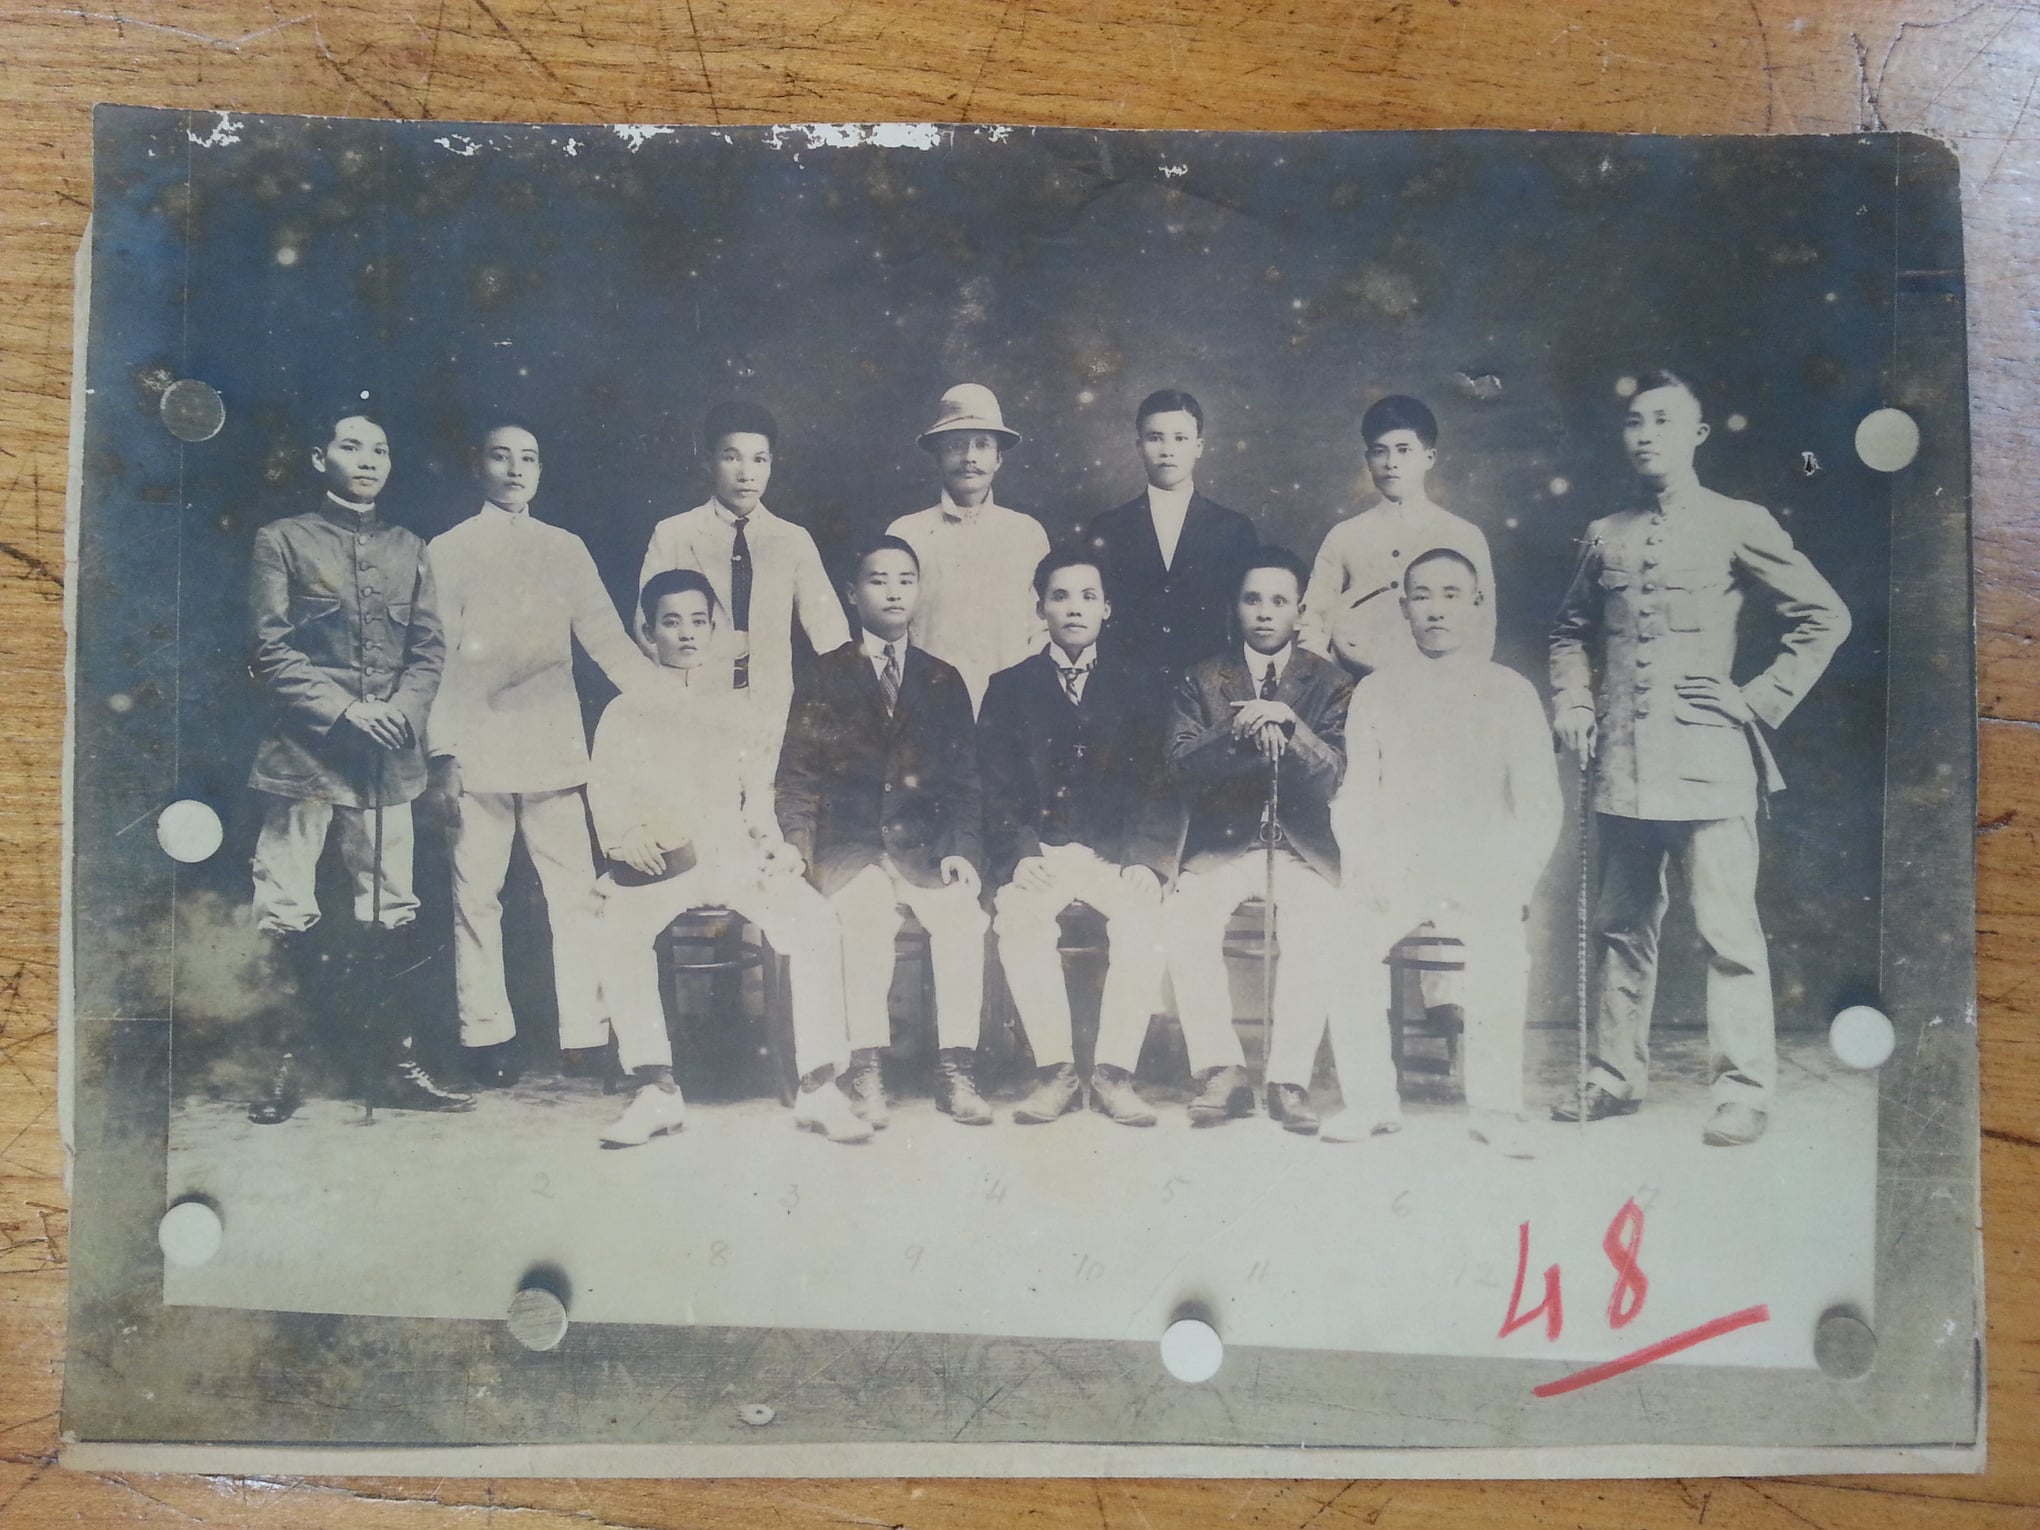 1 2 3 4 5 6 7
8 9 10 11 12
48